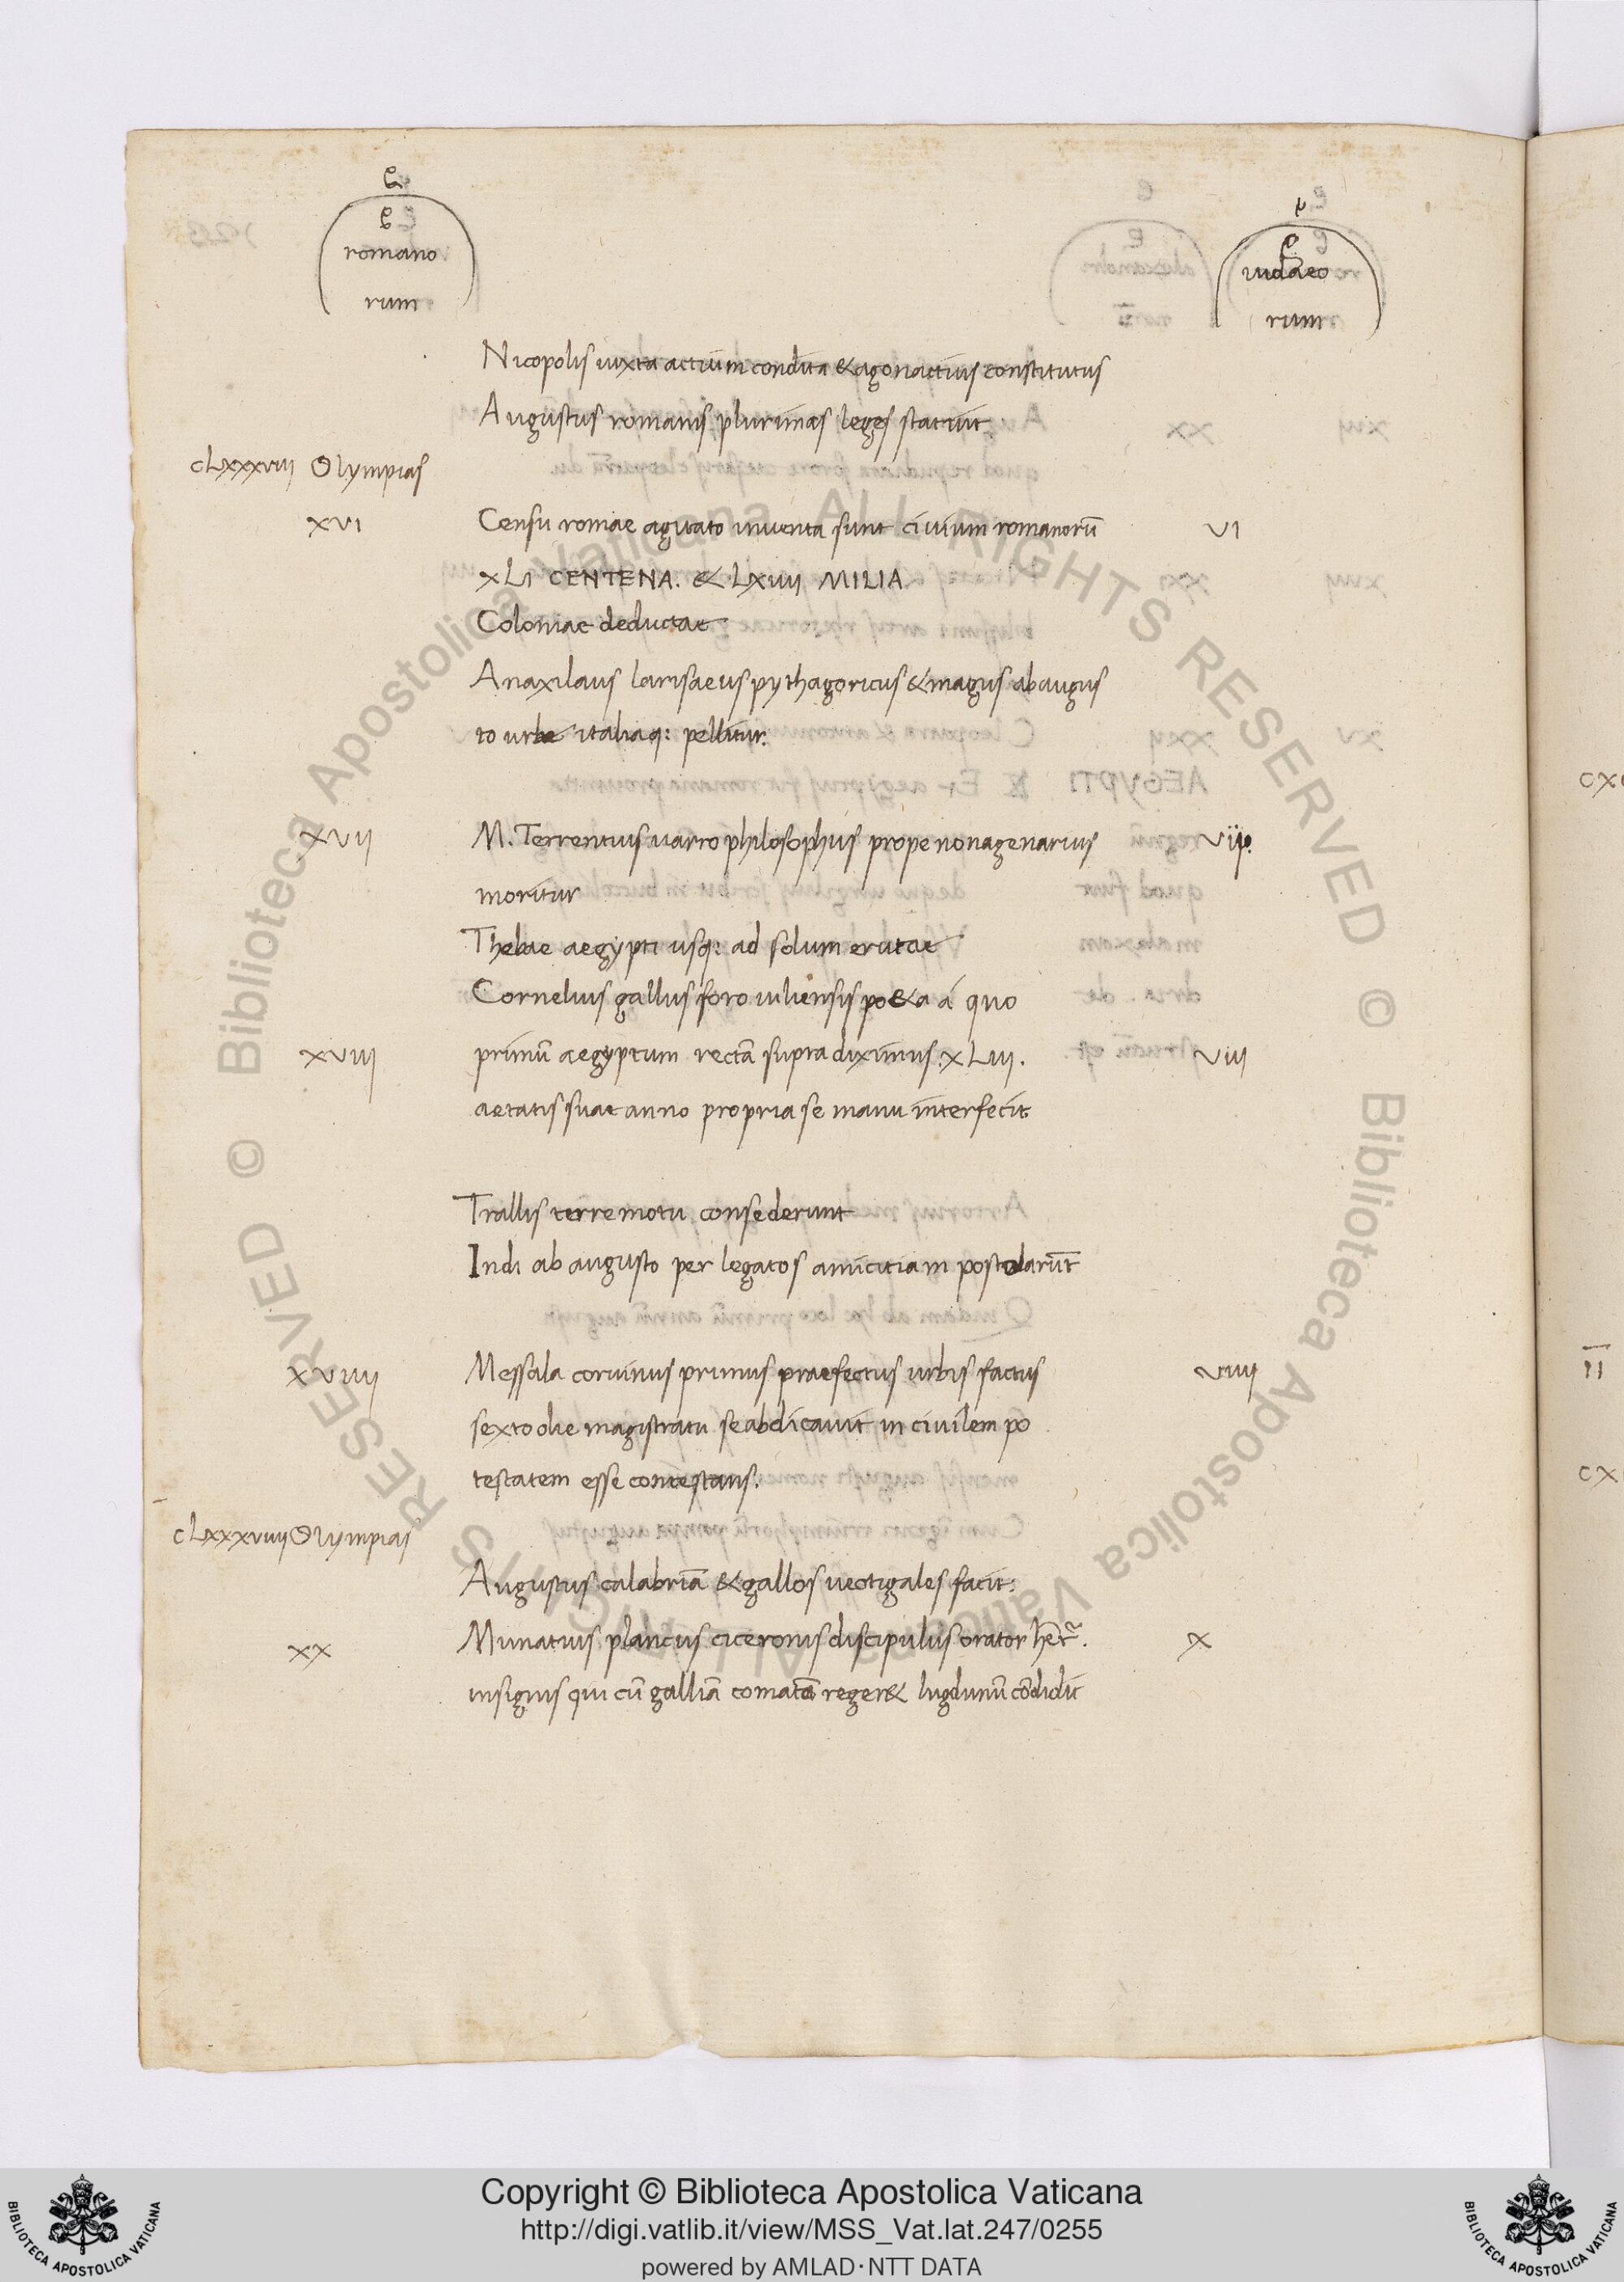 romano
rum
iudaeo
rum
Nicopolis iuxta actium condita & agon actius constitutus
Augustus romanis plurimas leges statuit
cLxxxviii Olympias
xvi Censu romae agitato inventa sunt civium romanorū vi
xLi CENTENA. & Lxiiii MILIA
Coloniae deductae
Anaxilaus larisaeus pythagoricus & magus ab augus
to urbe italiaq: pellitur.
xvii M. Terrentius varro philosophus prope nonagenarius vii
moritur
Thebae aegypti usq: ad solum erutae
Cornelius gallus foro iuliensis po&a á quo
xviii primū aegyptum rectā supra diximus. xLiii. viii
aetatis suae anno propria se manu interfecit
Trallis terremotu consederunt
Indi ab augusto per legatos amicitiam postolarūt
xviiii Messala corvinus primus praefectus urbis factus viiii
sexto die magistratu se abdicavit in civilem po
testatem esse contestans:
cLxxxviiii Olympias
Augustus calabriā & gallos vectigales facit:
xx Munatius plancus ciceronis discipulus orator het. x
insignis qui cū galliā comatā reger& lugdunū cōdidit
Copyright © Biblioteca Apostolica Vaticana
http://digi.vatlib.it/view/MSS_Vat.lat.247/0255
powered by AMLAD·NTT DATA
BIBLIOTECA APOSTOLICA VATICANA
BIBLIOTECA APOSTOLICA VATICANA
© Biblioteca Apostolica Vaticana ALL RIGHTS RESERVED © Biblioteca Apostolica Vaticana ALL RIGHTS RESERVED